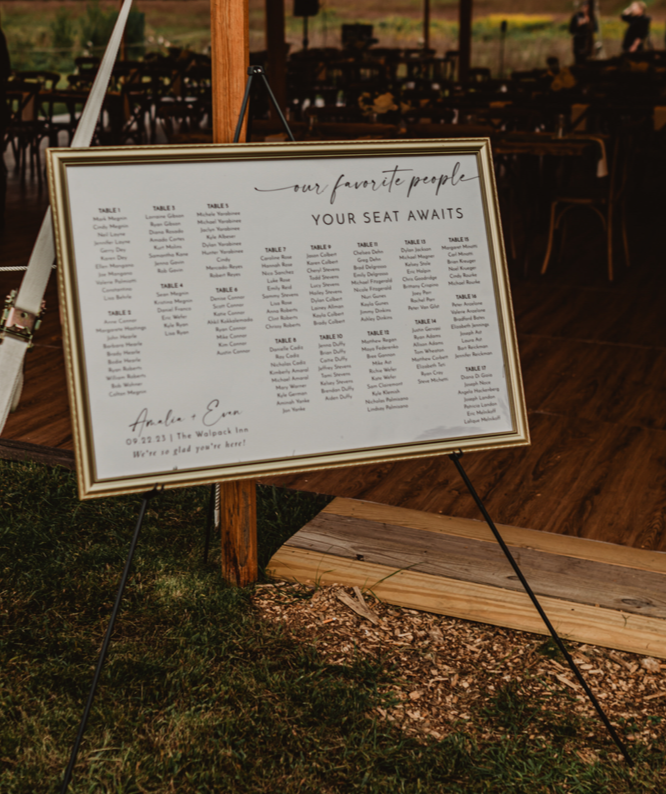 our favorite people
YOUR SEAT AWAITS
TABLE 1
Mark Mangan
Cindy Mangan
Neil Layne
Jennifer Layne
Gerry Day
Karen Day
Ellen Mangano
Joe Mangano
Valerie
Constantino
Lisa
TABLE 2
Anne Connor
Margarete Hastings
John Hearle
Barbara Hearle
Brady Hearle
Bodie Hearle
Ryan Roberts
William Roberts
Bob Wohner
Colten Mangan
TABLE 3
Lorraine Gibson
Ryan Gibson
Diana Rosado
Amado Cortes
Kurt Molina
Samantha Kane
Jenna Gavin
Rob Gavin
TABLE 4
Sean Mangan
Kristina Mangan
Daniel Franco
Eric Weller
Kyle Rizzo
Lisa Rizzo
TABLE 5
Michele Yandereas
Michael Yandereas
Jaclyn Yandereas
Kyle Albanes
Dylan Yandereas
Hunter Yandereas
Cindy
Mercedes Rozas
Robert Rozas
TABLE 6
Denise Connor
Scott Connor
Katie Connor
Ryan Connor
Mike Connor
Kim Connor
Austin Connor
TABLE 7
Caroline Rose
Hannah Rose
Nico Sanchez
Luke Rose
Emily Reid
Sammy Stevens
Lisa Rose
Anna Roberts
Clint Roberts
Christy Roberts
TABLE 8
Danielle Cadiz
Ray Cadiz
Nicholas Cadiz
Kimberly Amaral
Michael Amaral
Mary Warner
Kyle German
Amirah Yanke
Jon Yanke
TABLE 9
Jason Colbert
Karen Colbert
Cheryl Stevens
Todd Stevens
Lucy Stevens
Bailey Stevens
Dylan Colbert
Laney Allman
Kayla Colbert
Brady Colbert
TABLE 10
Jenna Duffy
Brian Duffy
Caite Duffy
Jeffrey Stevens
Tami Stevens
Kelsey Stevens
Brendan Duffy
Aiden Duffy
TABLE 11
Chelsea Dehn
Greg Dehn
Brad Delgrosso
Emily Delgrosso
Michael Fitzgerald
Nicole Fitzgerald
Nuri Gures
Kayla Gures
Jimmy Dickins
Ashley Dickins
TABLE 12
Matthew Regan
Maya Federowicz
Bree Gannon
Mike Ant
Richie Wefer
Kate Wefer
Sam Claremont
Kyle Kleissh
Nicholas Palmisano
Lindsay Palmisano
TABLE 13
Dalen Jackson
Michael Wagner
Kelsey Stola
Eric Halpin
Chris Goodridge
Brittany Crispino
Joey Parr
Rachel Parr
Peter Van Gilst
TABLE 14
Justin Gervasi
Ryan Adams
Allison Adams
Tom Wheaton
Matthew Corbett
Elizabeth Torr
Ryan Croy
Steve Michem
TABLE 15
Margaret Missett
Carl Missett
Brian Krueger
Noel Krueger
Cindy Rourke
Michael Rourke
TABLE 16
Peter Anzalone
Valerie Anzalone
Bradford Bates
Elizabeth Jennings
Joseph Ard
Laura Ard
Burt Reickman
Jennifer Reickman
TABLE 17
Diana Di Gioia
Joseph Nova
Angela Hackenberg
Joseph Landon
Patricia Landon
Eric Melnikoff
Lafique Melnikoff
Amalia + Evan
09.22.23 | The Walpack Inn
We're so glad you're here!